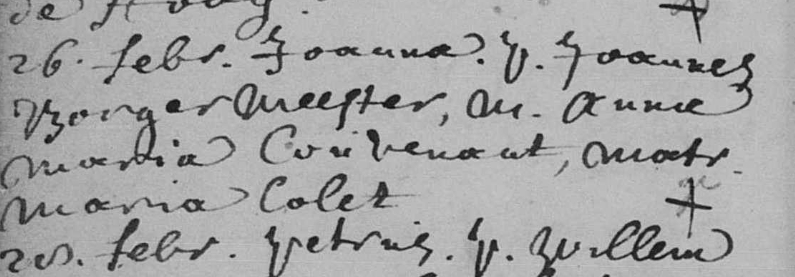 de Hoog
26. febr. Joanna. p. Joannes
Borgermeester, m. Anna
maria Couvenant, matr.
maria Colet
28. febr. petrus. p. willem